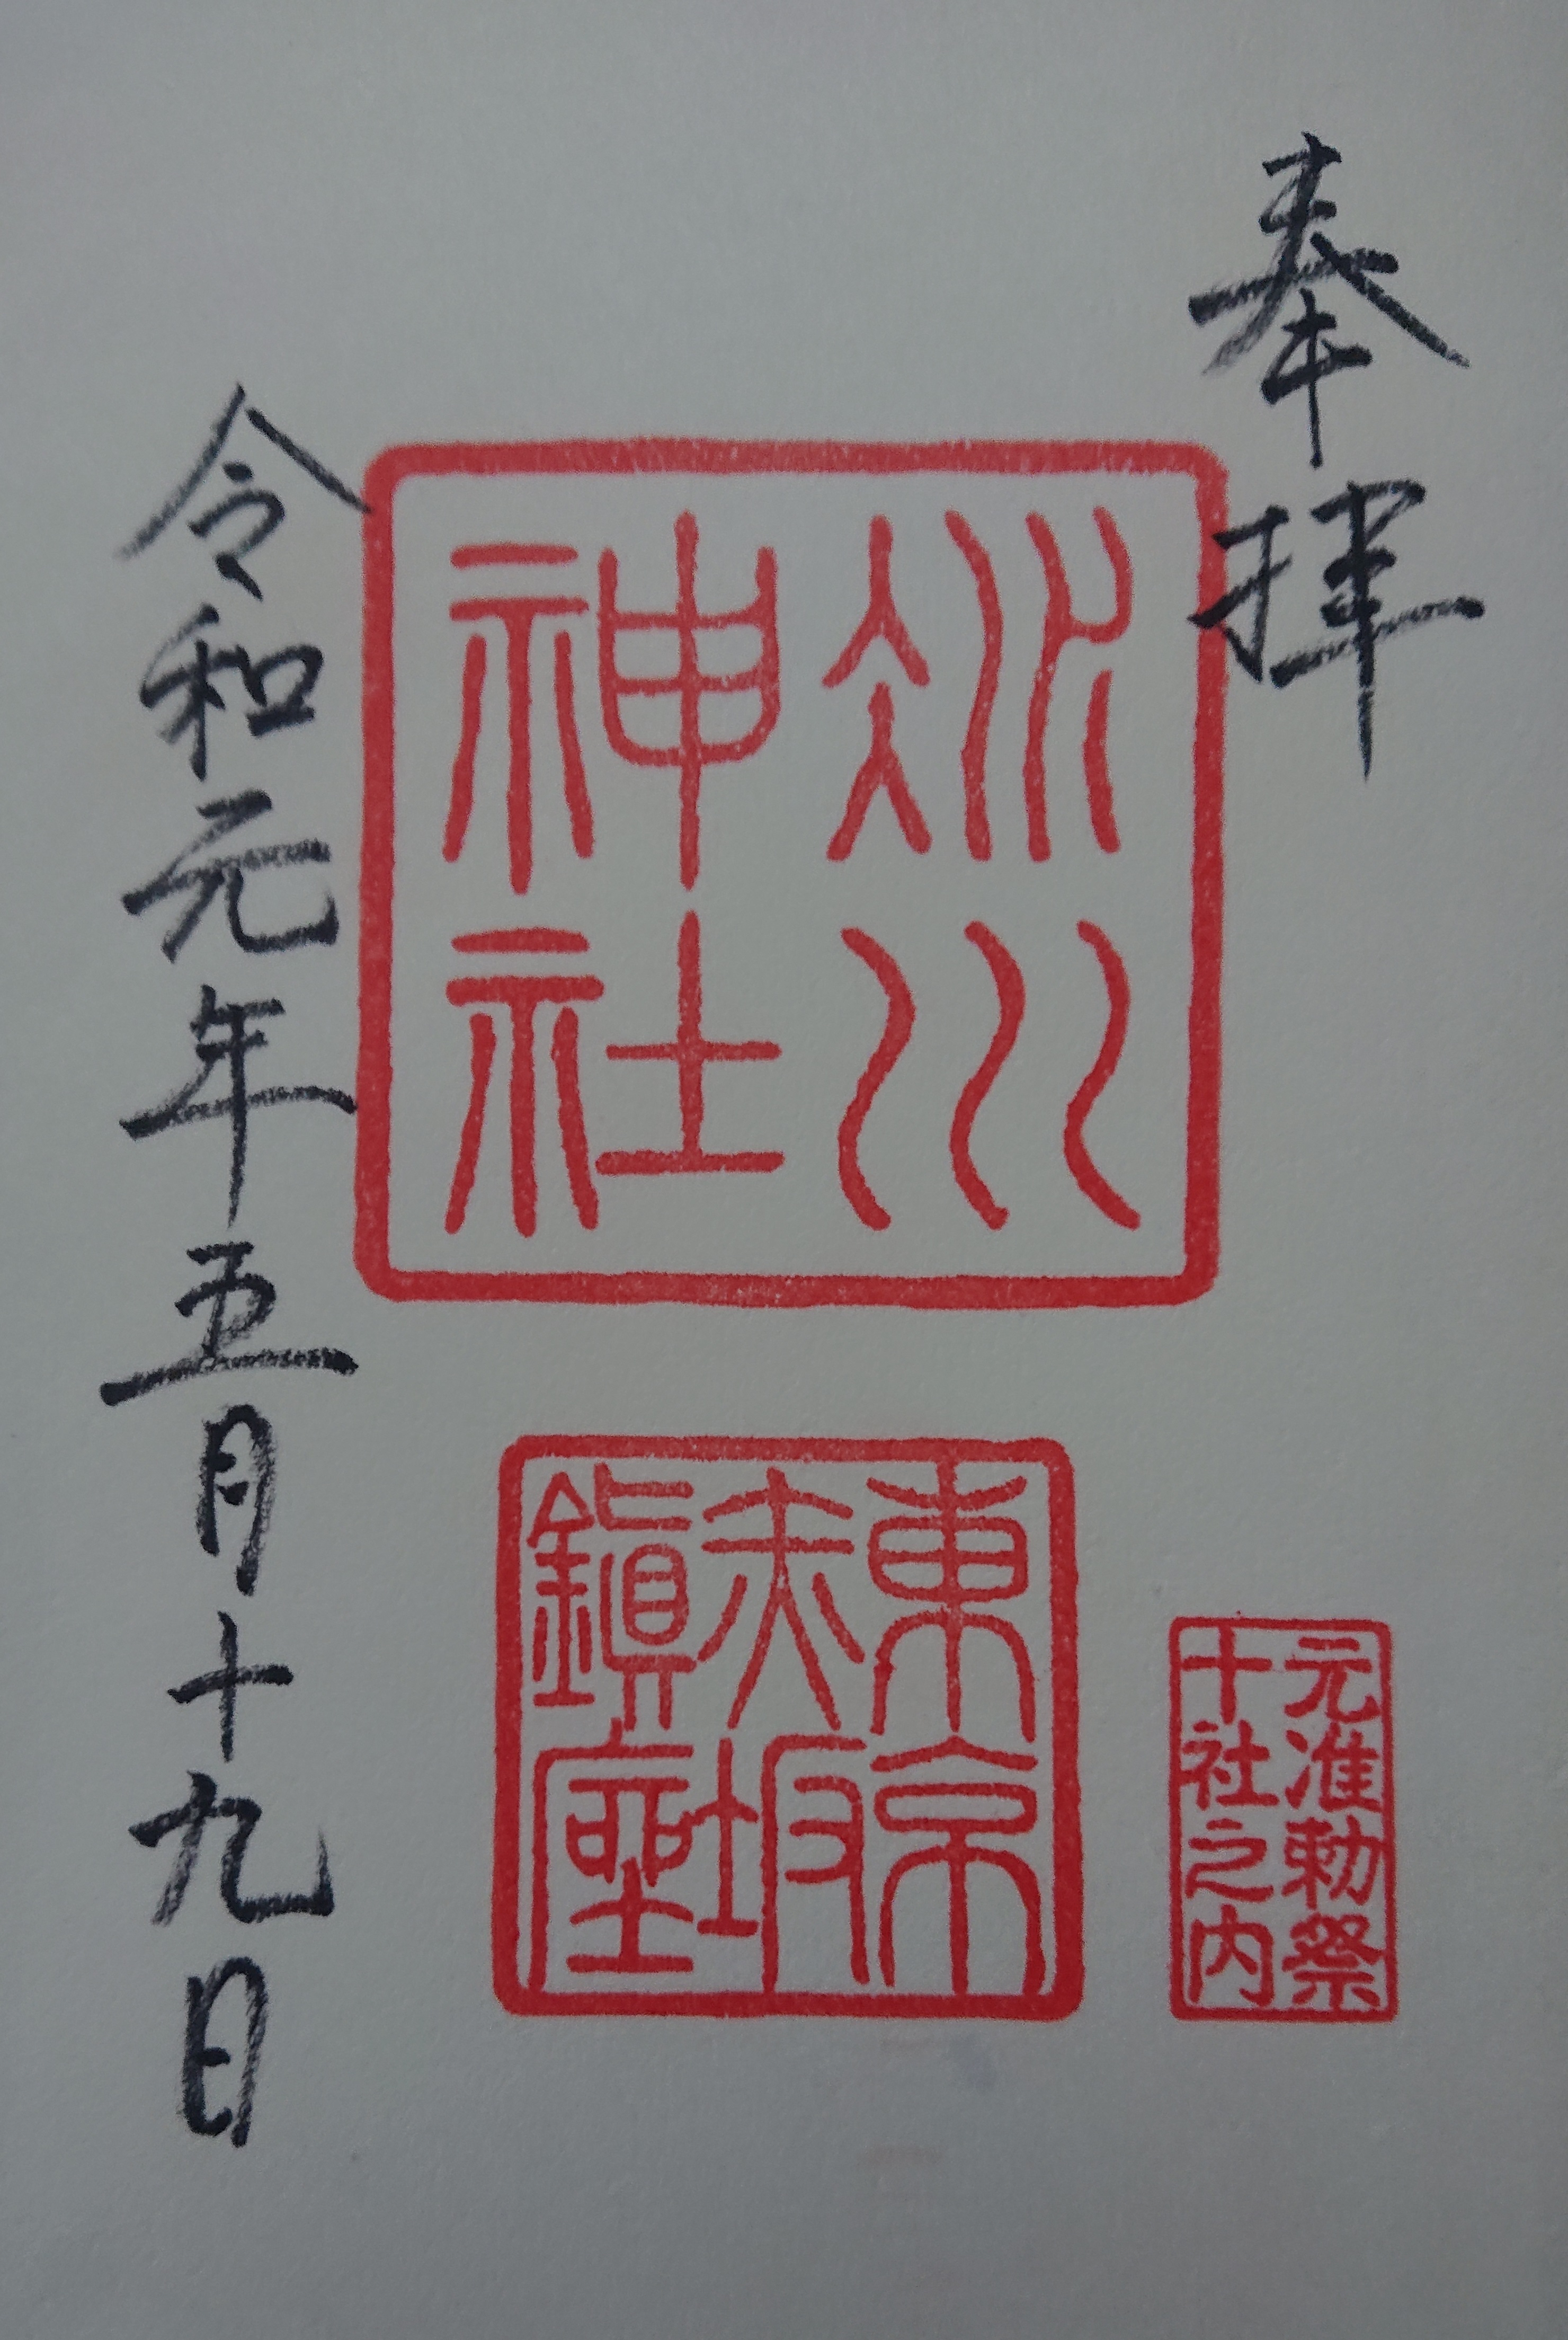 奉拝
氷川
神社
東京
赤坂
鎮座
元准勅祭
十社之内
令和元年五月十九日